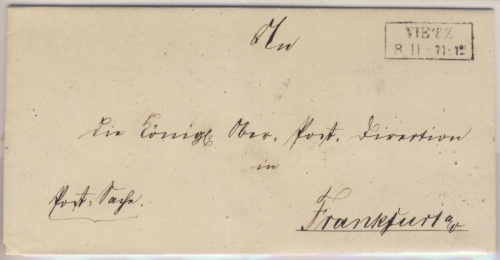 An
VIETZ
8 11 · 11-12
die Königl. Ober. Post. Direction
in
Post. Sache.
Frankfurt a/o